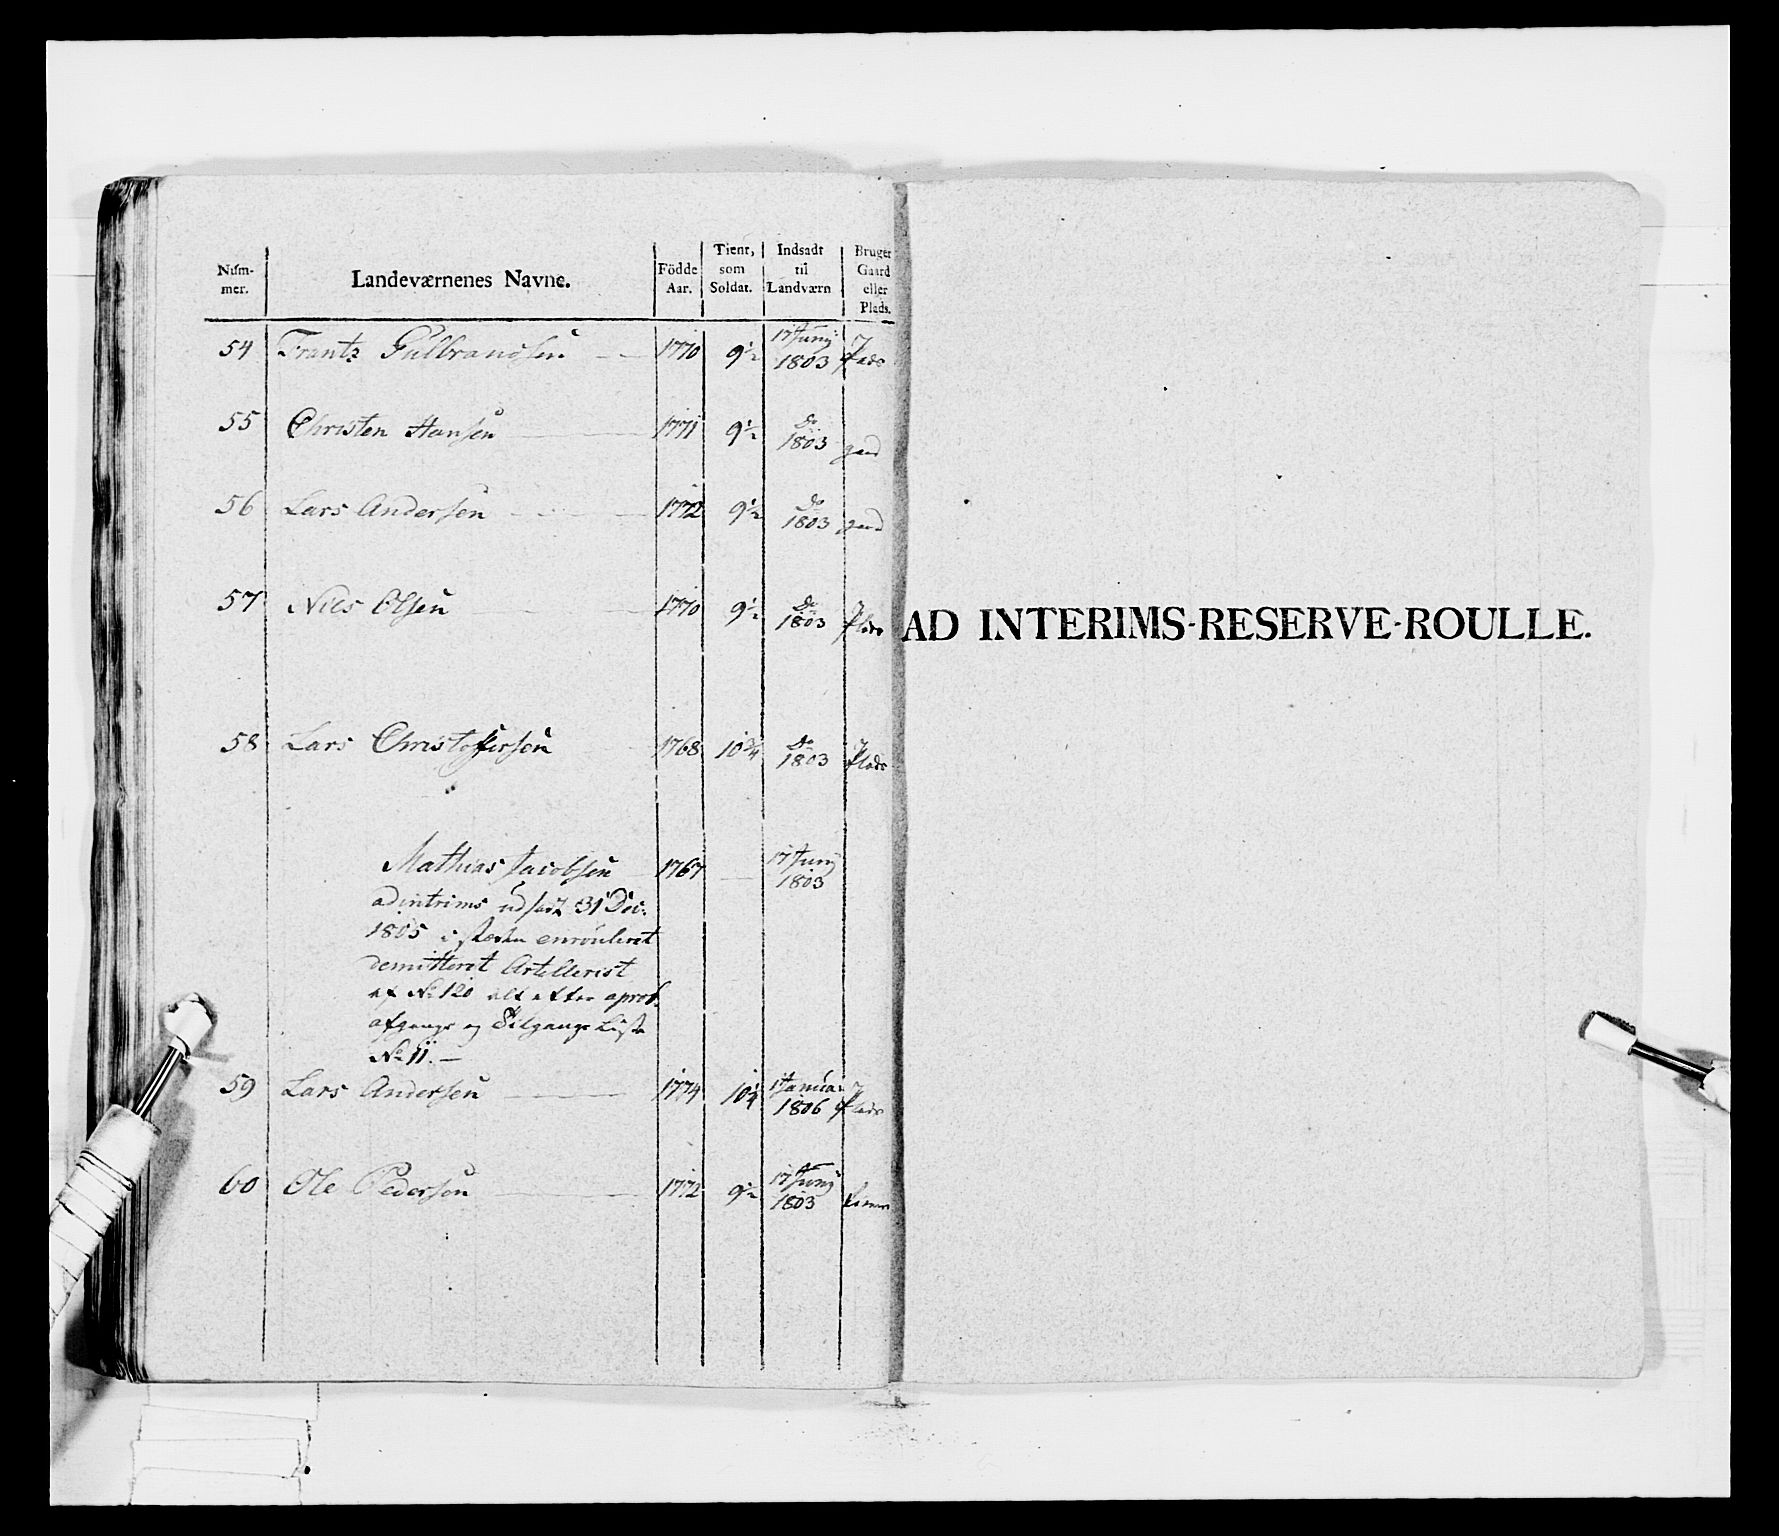 Num-
mer.
Landeværnenes Navne.
Födde
Aar.
Tient,
som
Soldat.
Indsadt
til
Landværn
Bruger
Gaard
eller
Plads.
54 Frantz Gulbrandsen 1770 9½ 17 Junÿ 1803 Plads
55 Christen Hansen 1771 9½ Do 1803 gaard
56 Lars Andersen 1772 9½ do 1803 gaard
57 Niels Olsen 1770 9½ Do 1803 Plads
58 Lars Christoffersen 1768 10¾ Do 1803 Plads
Mathias Jacobsen 1767 17 Junÿ 1803
adintrims udsadt 31 Dec.
1805 i stæden enroulleret
demitteret Artillerist
af No 120 alt efter aprob.
afgangs og Tilgangs Liste
No 11.
59 Lars Andersen 1774 10¼ 1 Januar 1806 Plads
60 Ole Pedersen 1772 9½ 17 Junÿ 1803
AD INTERIMS-RESERVE-ROULLE.